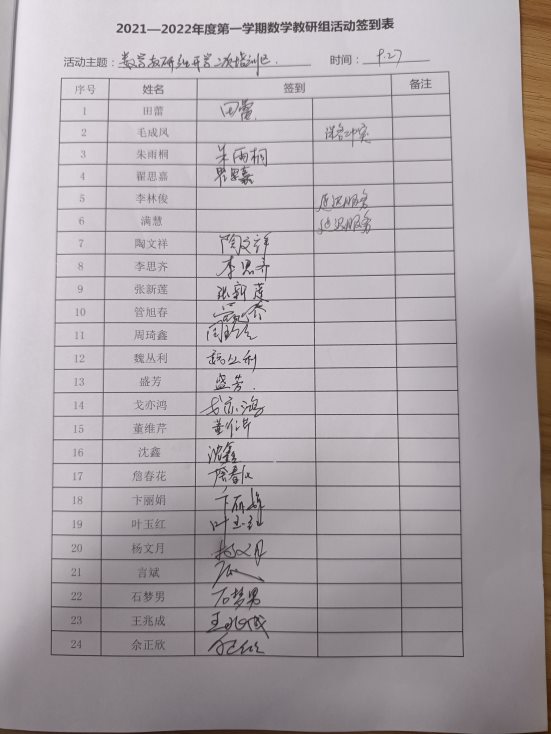 2021—2022年度第一学期数学教研组活动签到表
活动主题：数学教研组开学二次培训会 时间：9.27
序号 姓名 签到 备注
1 田蕾 田蕾
2 毛成凤
3 朱雨桐 朱雨桐
4 翟思嘉 翟思嘉
5 李林俊 延迟服务
6 满慧 延迟服务
7 陶文祥 陶文祥
8 李思齐 李思齐
9 张新莲 张新莲
10 管旭春
11 周琦鑫
12 魏丛利 魏丛利
13 盛芳 盛芳
14 戈亦鸿 戈亦鸿
15 董维芹 董维芹
16 沈鑫 沈鑫
17 詹春花 詹春花
18 卞丽娟 卞丽娟
19 叶玉红 叶玉红
20 杨文月 杨文月
21 言斌
22 石梦男 石梦男
23 王兆成 王兆成
24 佘正欣